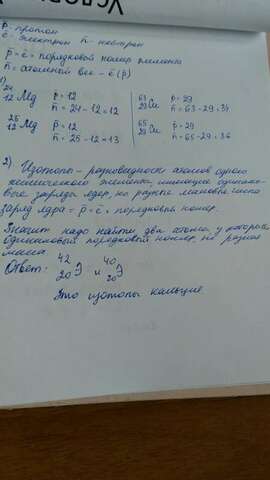 Услов
p̄ - протон
ē - электрон n̄ - нейтрон
p̄ = ē = порядковый номер элемента
n̄ = атомный вес - ē (p̄)
1)
24 12 Mg p̄ = 12
n̄ = 24 - 12 = 12
63 29 Cu p̄ = 29
n̄ = 63 - 29 = 34
25 12 Mg p̄ = 12
n̄ = 25 - 12 = 13
65 29 Cu p̄ = 29
n̄ = 65 - 29 = 36
2) Изотопы - разновидность атомов одного
химического элемента, имеющие одинако-
вые заряды ядер, но разные массовые числа
заряд ядра = p̄ = ē = порядковый номер.
Значит надо найти два атома, у которых
одинаковый порядковый номер, но разная
масса.
Ответ: 42 20 Э и 40 20 Э
Это изотопы кальция.